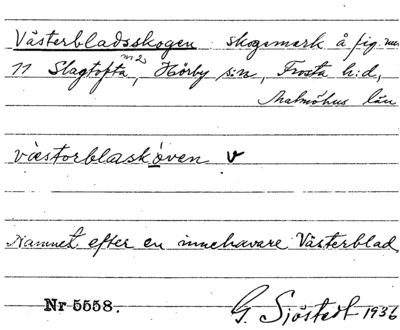 Västerbladsskogen skogsmark å fig. nr
11 Slagtofta m2, Hörby s:n, Frosta h:d,
Malmöhus län
västorblaskoven v
Namnet efter en innehavare Västerblad
Nr 5558. G. Sjöstedt 1936